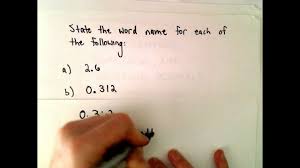 State the word name for each of
the following:
a) 2.6
b) 0.312